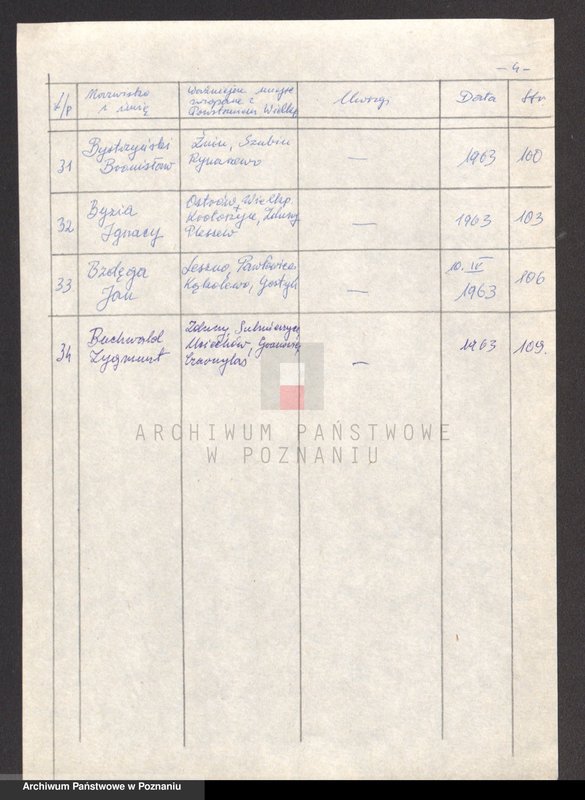 - 4 -
L/p Nazwisko i imię Ważniejsze miejsc. związane z Powstaniem Wielkp. Uwagi Data Str.
31 Bystrzyński Bronisław Żnin, Szubin Rynarzewo — 1963 100
32 Byzia Ignacy Ostrów Wielkp. Krotoszyn, Zduny Pleszew — 1963 103
33 Bzdęga Jan Leszno, Pawłowice Kąkolewo, Gostyń — 10. IV 1963 106
34 Buchwald Zygmunt Zduny, Sulmierzyce — 1963 109.
ARCHIWUM PAŃSTWOWE
W POZNANIU
Archiwum Państwowe w Poznaniu